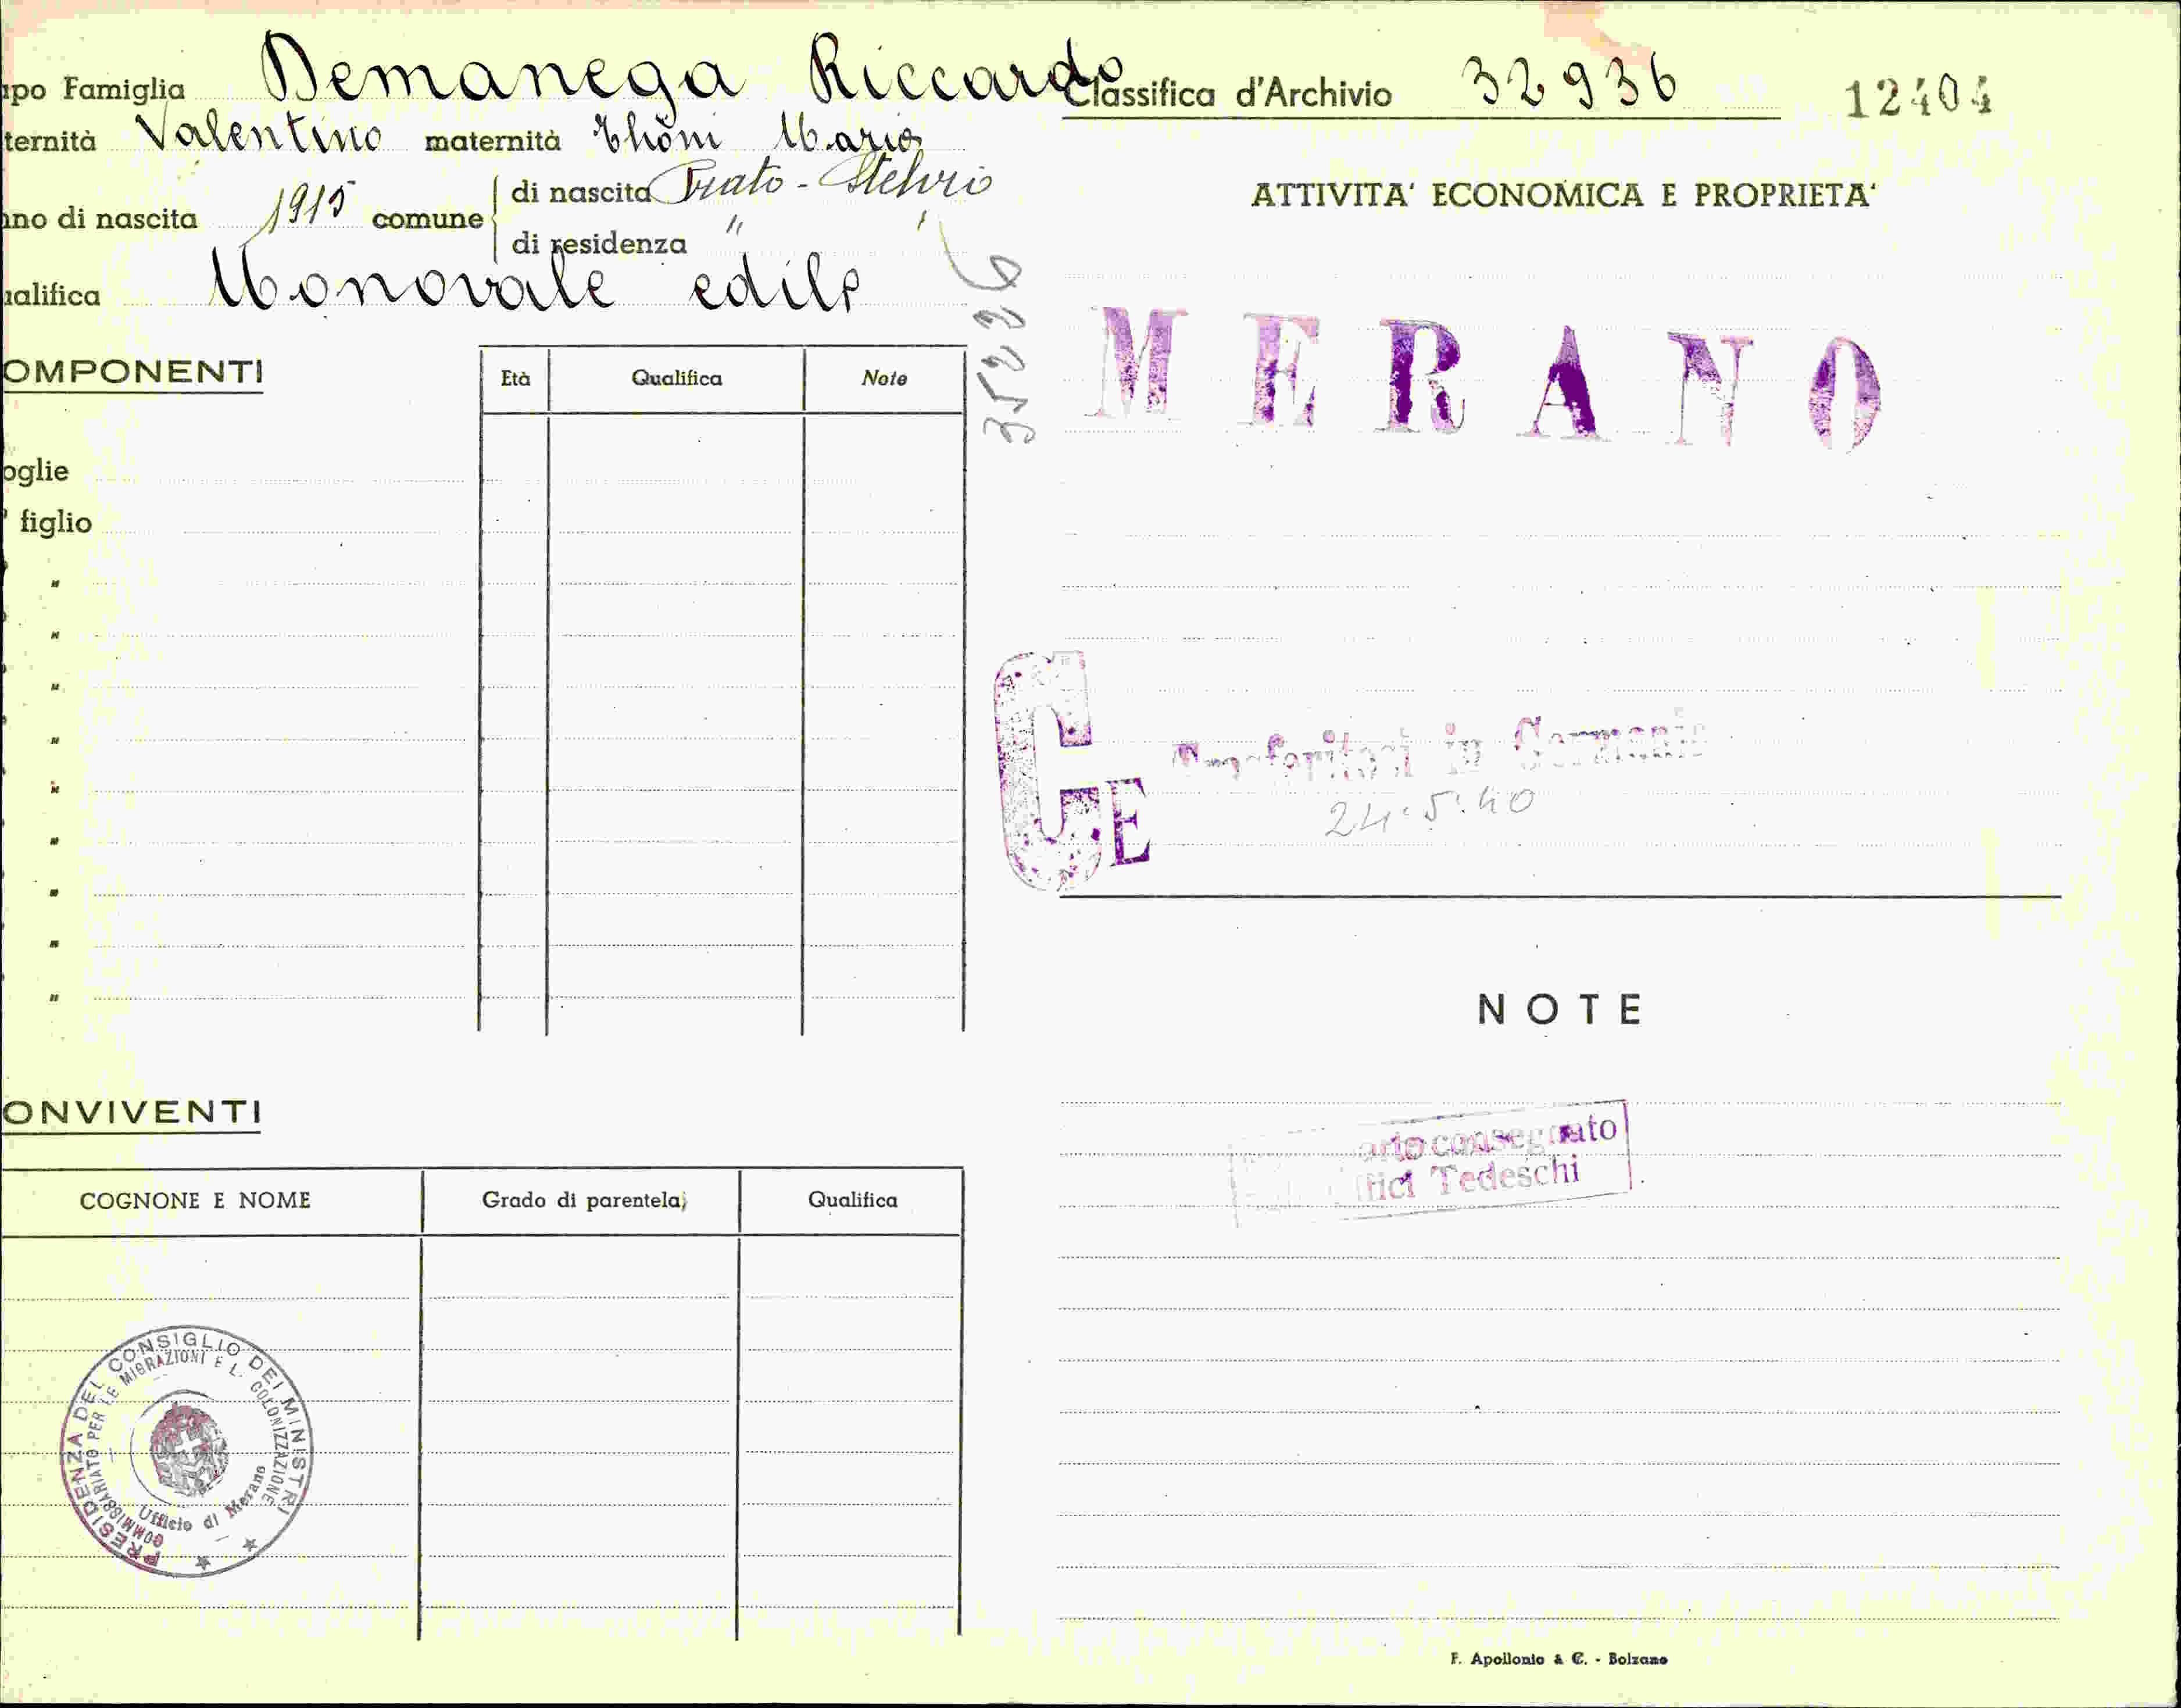 apo Famiglia Demanega Riccardo
ternità Valentino maternità Thöni Maria
nno di nascita 1915 comune di nascita Prato - Stelvio
di residenza " "
ualifica Manovale edile
OMPONENTI
Età Qualifica Note
oglie
figlio
"
"
"
"
"
"
"
"
"
ONVIVENTI
COGNONE E NOME Grado di parentela Qualifica
PRESIDENZA DEL CONSIGLIO DEI MINISTRI
COMMISSARIATO PER LE MIGRAZIONI E L. COLONIZZAZIONE
Ufficio di Merano
35226
Classifica d'Archivio 32936 12404
ATTIVITA' ECONOMICA E PROPRIETA'
MERANO
CE
Trasferitosi in Germania
24.5.40
NOTE
arto consegnato
fici Tedeschi
F. Apollonio & C. - Bolzano